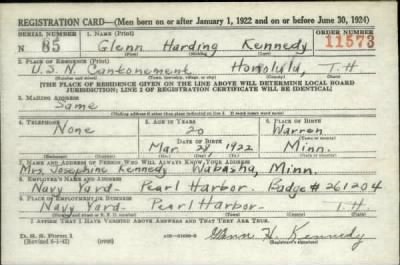 REGISTRATION CARD—(Men born on or after January 1, 1922 and on or before June 30, 1924)
SERIAL NUMBER 1. NAME (Print) ORDER NUMBER
N 85 Glenn Harding Kennedy 11573
(First) (Middle) (Last)
2. PLACE OF RESIDENCE (Print)
U.S.N. Cantonement Honolulu, T.H
(Number and street) (Town, township, village, or city) (County) (State)
[THE PLACE OF RESIDENCE GIVEN ON THE LINE ABOVE WILL DETERMINE LOCAL BOARD
JURISDICTION; LINE 2 OF REGISTRATION CERTIFICATE WILL BE IDENTICAL]
3. MAILING ADDRESS
Same
[Mailing address if other than place indicated on line 2. If same insert word same]
4. TELEPHONE 5. AGE IN YEARS 6. PLACE OF BIRTH
None 20 Warren
DATE OF BIRTH
Mar. 24 1922 Minn.
(Exchange) (Number) (Mo.) (Day) (Yr.) (State or country)
7. NAME AND ADDRESS OF PERSON WHO WILL ALWAYS KNOW YOUR ADDRESS
Mrs. Josephine Kennedy Wabasha, Minn.
8. EMPLOYER'S NAME AND ADDRESS
Navy Yard - Pearl Harbor. Badge # 261204
9. PLACE OF EMPLOYMENT OR BUSINESS
Navy Yard - Pearl Harbor T.H.
(Number and street or R. F. D. number) (Town) (County) (State)
I AFFIRM THAT I HAVE VERIFIED ABOVE ANSWERS AND THAT THEY ARE TRUE.
D. S. S. Form 1
(Revised 6-1-42) (over) Glenn H. Kennedy
(Registrant's signature)